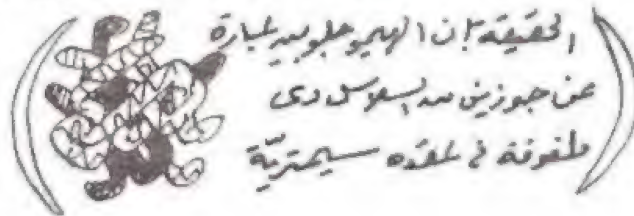 الحقيقة إن الهيموجلوبين عبارة
عن جوزين من السلاسل دى
ملفوفة فى عقده سيمترية